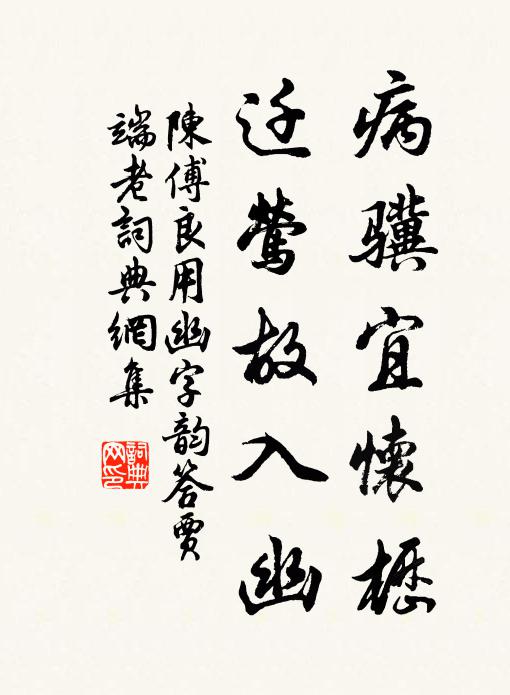 病骥宜懷櫪
迁莺故入幽
陳傅良用幽字韵答賈
端老詞典網集
詞典
网印